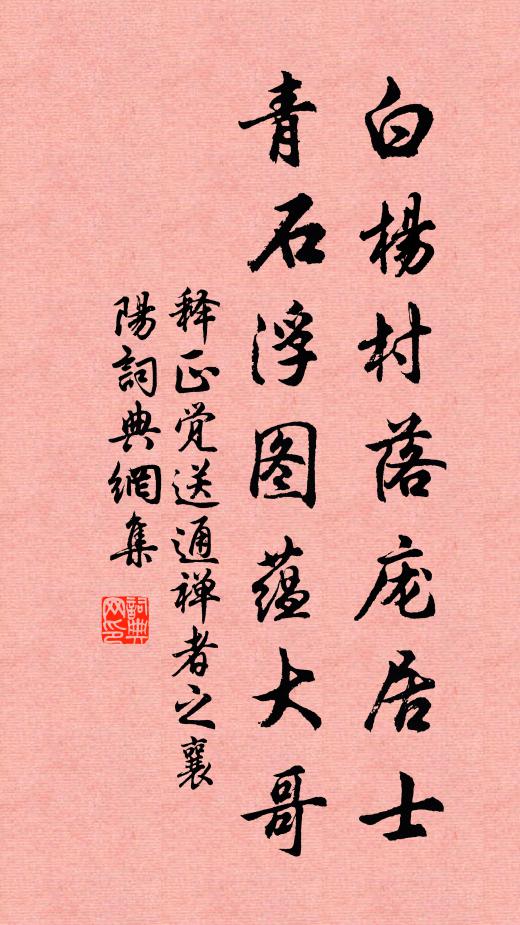 白楊村落庞居士
青石浮图蕴大哥
释正觉送通禅者之襄
陽詞典網集
詞典
网印